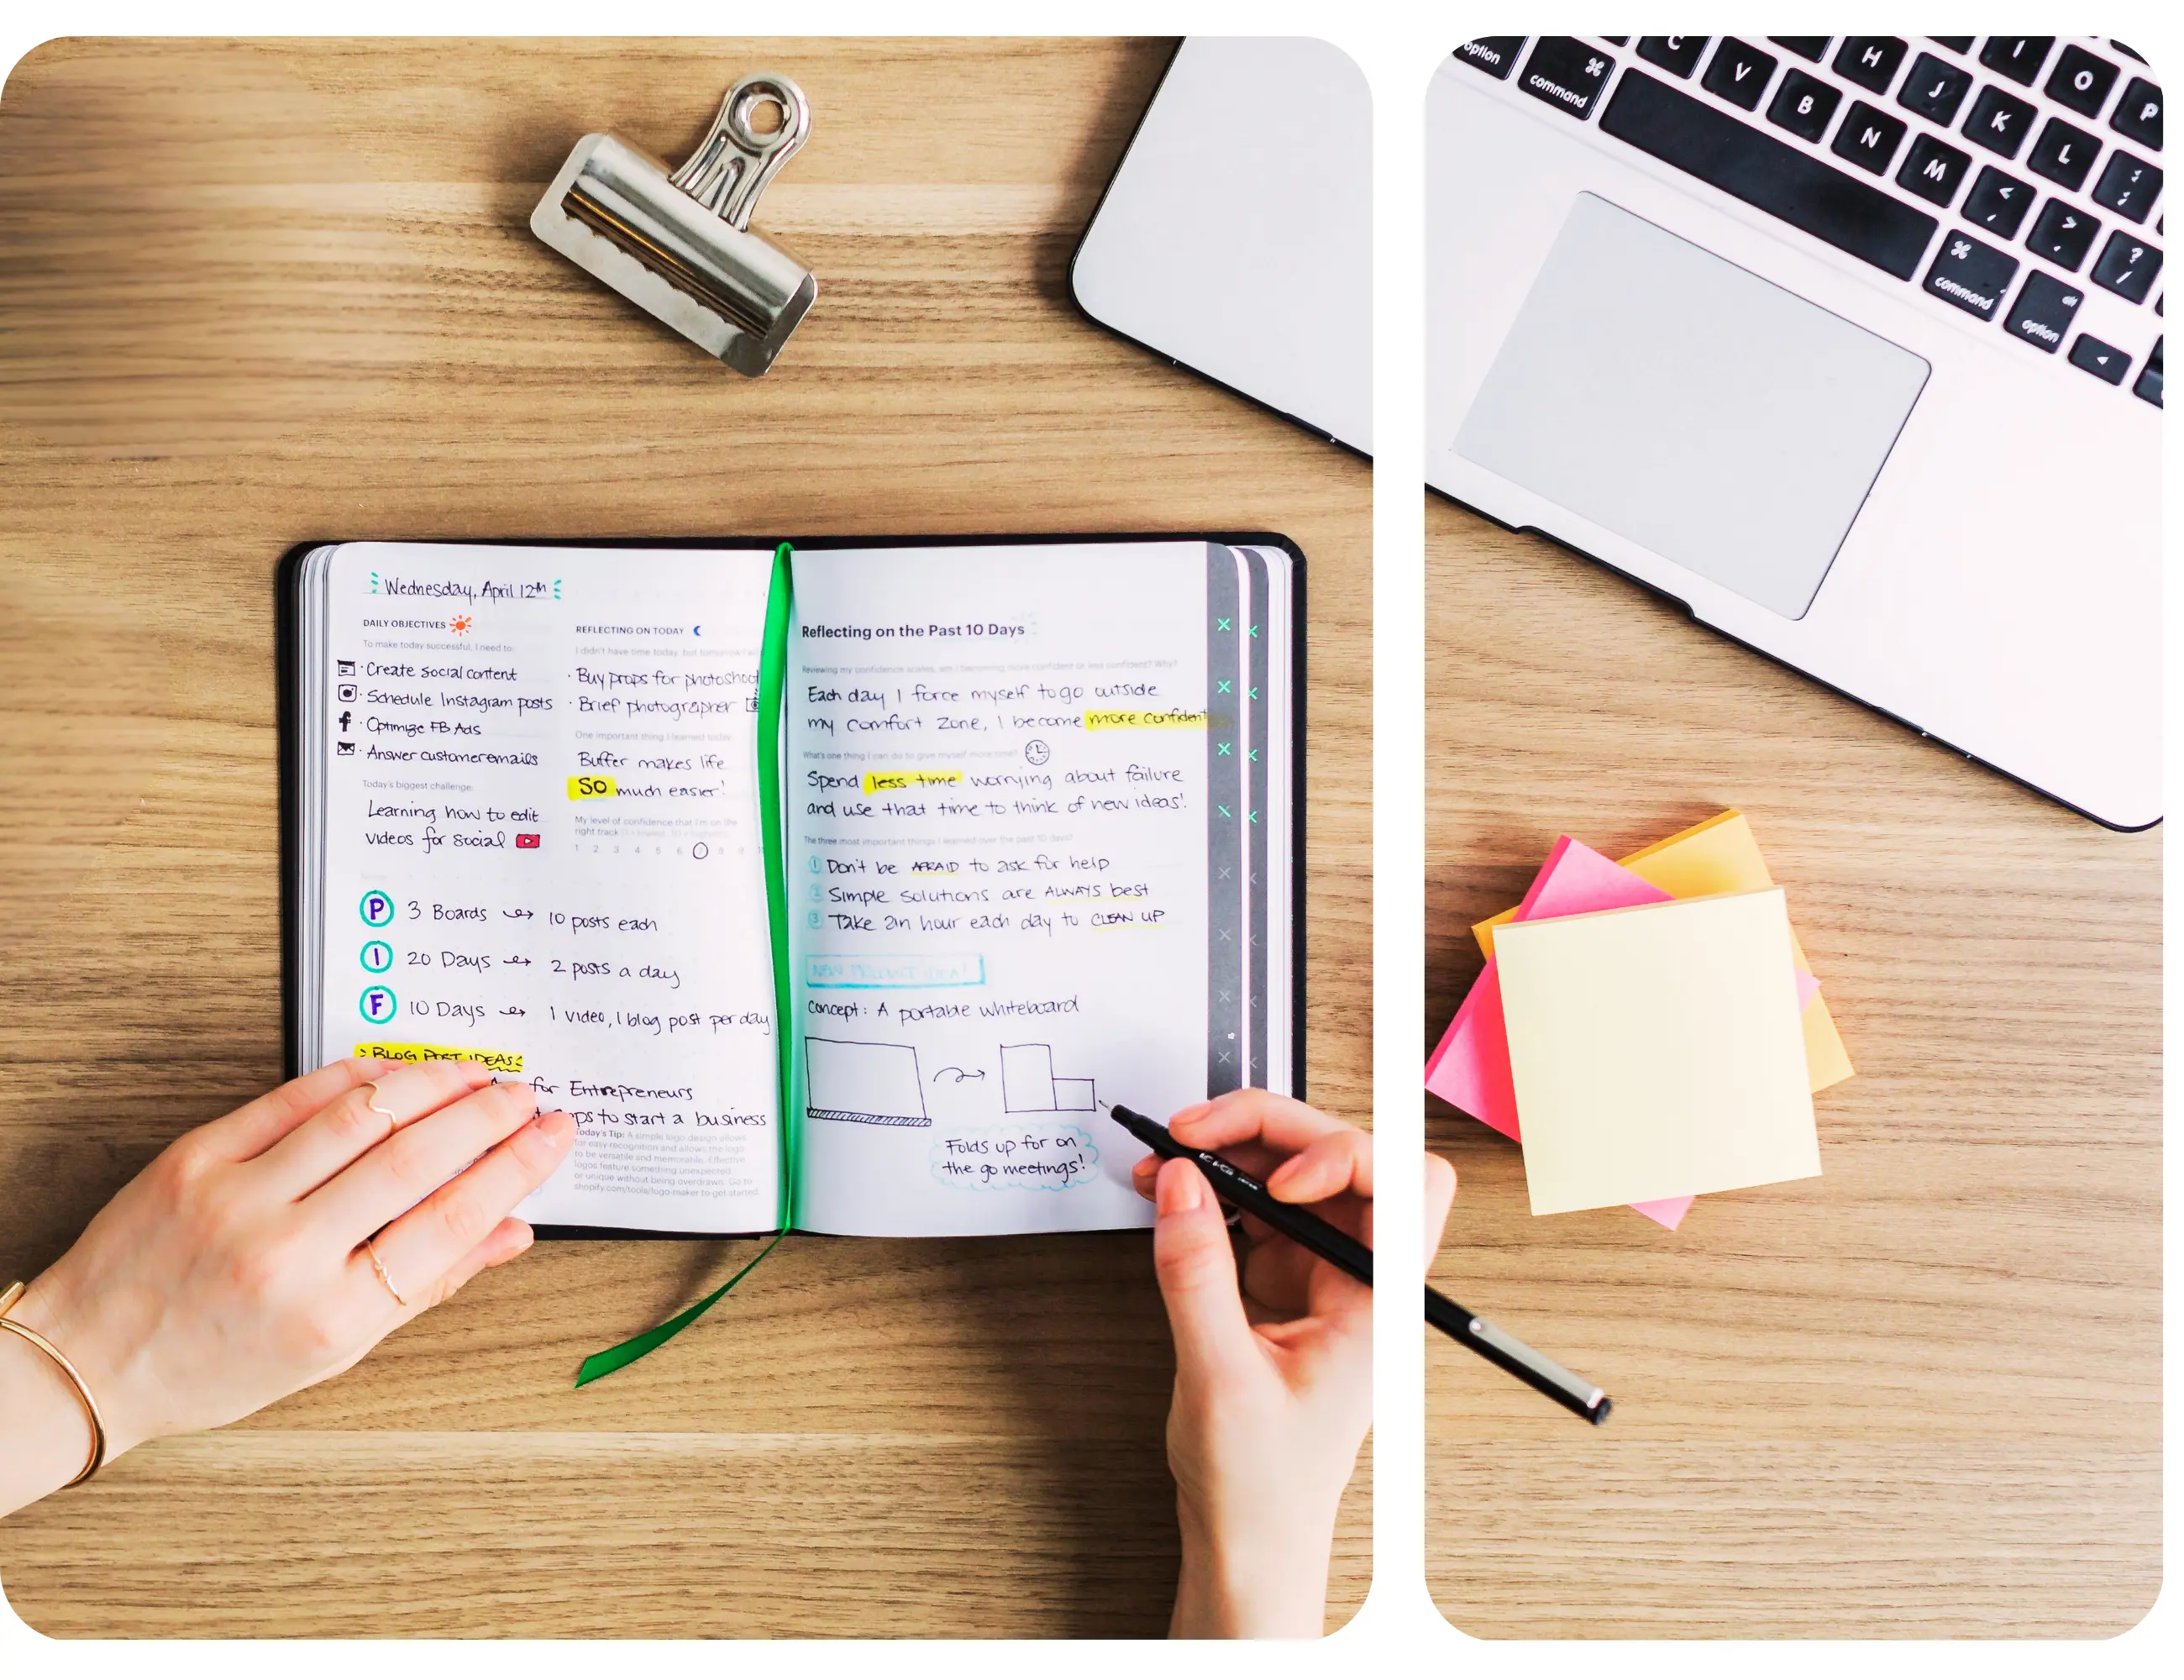 Wednesday, April 12th
DAILY OBJECTIVES
To make today successful, I need to:
· Create social content
· Schedule Instagram posts
· Optimize FB Ads
· Answer customer emails
Today's biggest challenge:
Learning how to edit
videos for social
REFLECTING ON TODAY
I didn't have time today, but tomorrow I will
· Buy props for photoshoot
· Brief photographer
One important thing I learned today:
Buffer makes life
SO much easier!
My level of confidence that I'm on the
right track
1 2 3 4 5 6 7 8 9
P 3 Boards → 10 posts each
I 20 Days → 2 posts a day
F 10 Days → 1 video, 1 blog post per day
BLOG POST IDEAS:
for Entrepreneurs
to start a business
Today's Tip: A simple logo design allows
for easy recognition and allows the logo
to be versatile and memorable. Effective
logos feature something unexpected
or unique without being overdrawn. Go to
shopify.com/tools/logo-maker to get started.
Reflecting on the Past 10 Days
Reviewing my confidence scores, am I becoming more confident or less confident? Why?
Each day I force myself to go outside
my comfort zone, I become more confident
What's one thing I can do to give myself more time?
Spend less time worrying about failure
and use that time to think of new ideas!
The three most important things I learned over the past 10 days?
1 Don't be AFRAID to ask for help
2 Simple solutions are ALWAYS best
3 Take an hour each day to CLEAN UP
NEW PRODUCT IDEA!
Concept: A portable whiteboard
Folds up for on
the go meetings!
option
command
C
V
B
N
M
H
J
K
L
I
O
P
;
<
,
>
.
?
/
command
alt
option